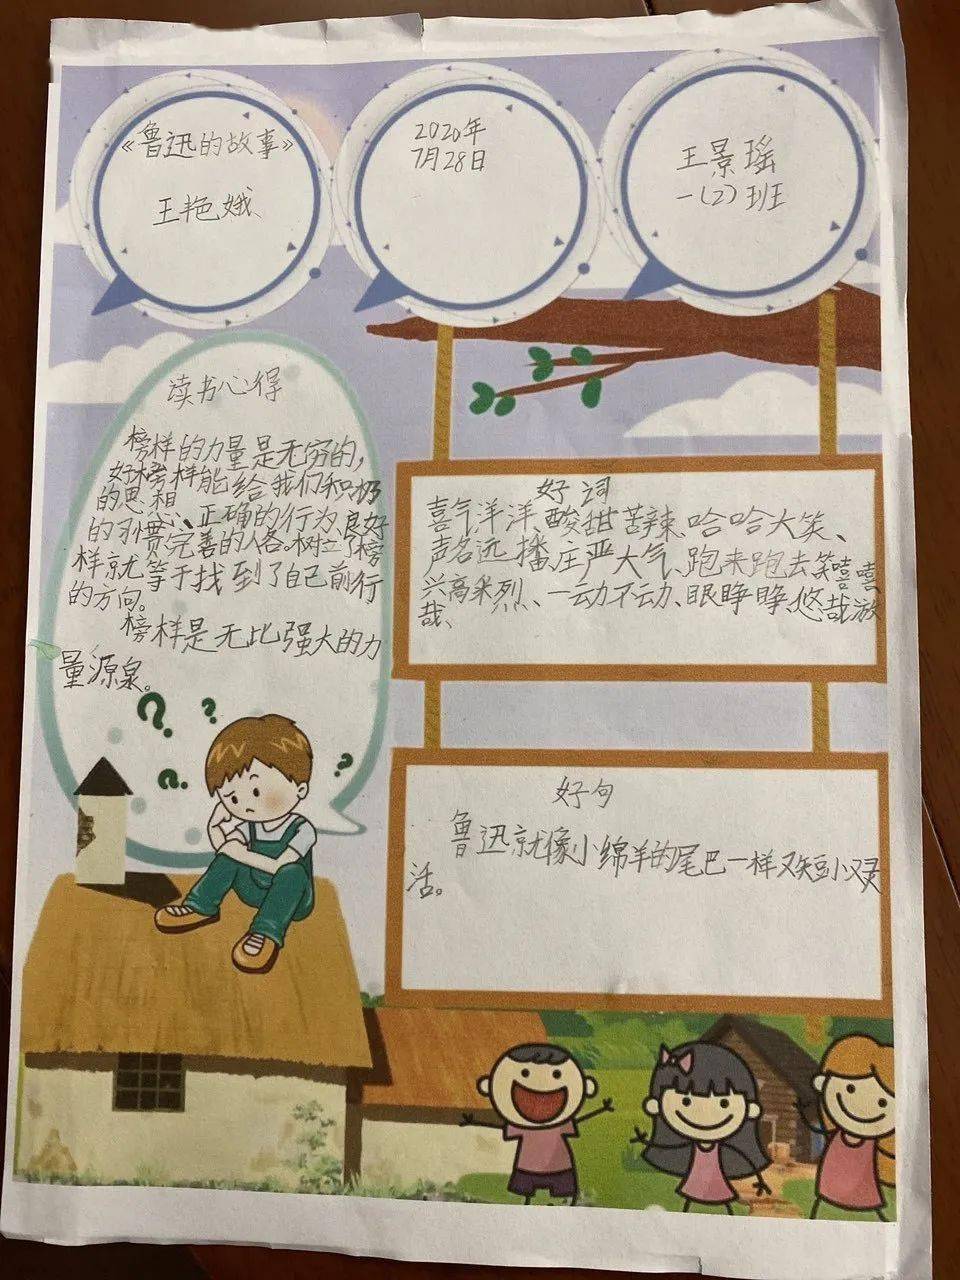 《鲁迅的故事》
王艳娥
2020年
7月28日
王景瑶
一(2)班
读书心得
榜样的力量是无穷的，
好榜样能给我们积极
的思想、正确的行为、良好
的习惯完善的人各。树立了榜
样就等于找到了自己前行
的方向。
榜样是无比强大的力
量源泉。
好词
喜气洋洋、酸甜苦辣、哈哈大笑、
声名远播庄严大气、跑来跑去笑嘻嘻
兴高采烈、一动不动、眼睁睁、悠哉游
哉、
好句
鲁迅就像小绵羊的尾巴一样又短小又灵
活。